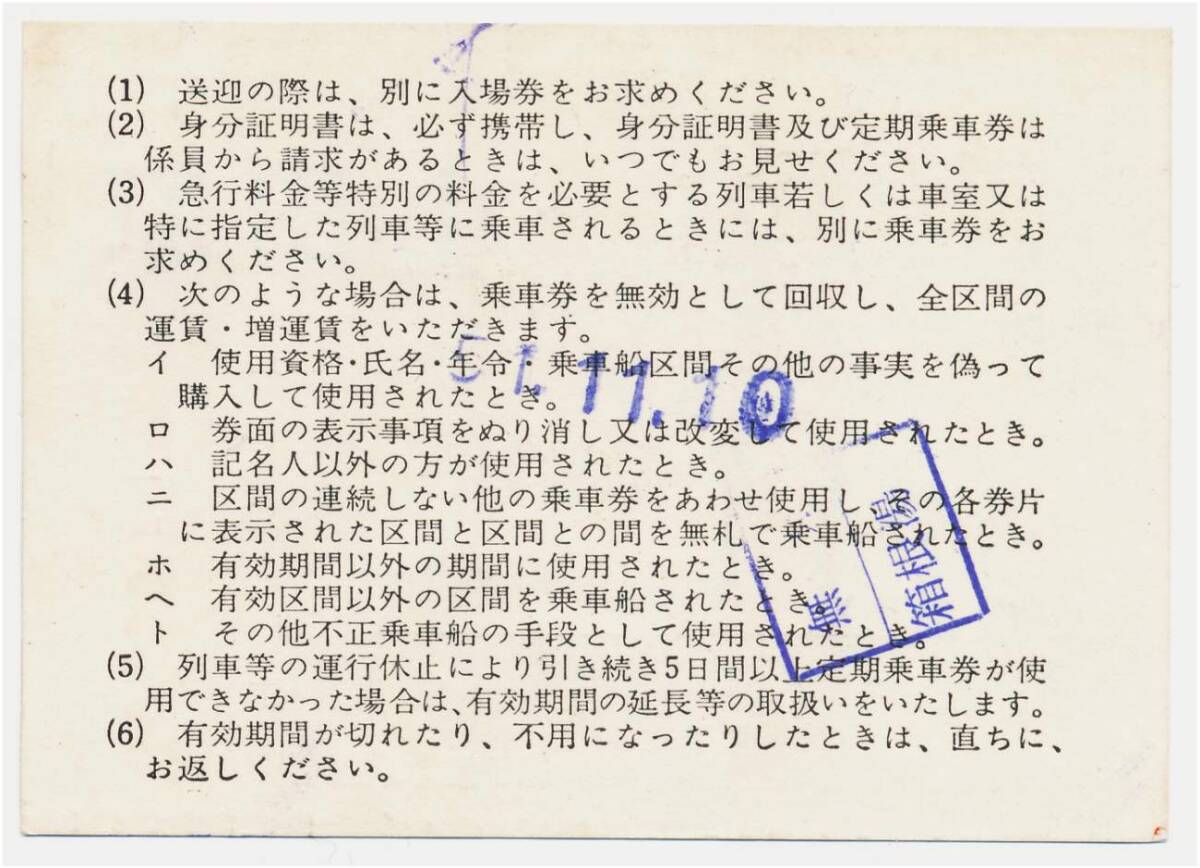 (1) 送迎の際は、別に入場券をお求めください。
(2) 身分証明書は、必ず携帯し、身分証明書及び定期乗車券は
係員から請求があるときは、いつでもお見せください。
(3) 急行料金等特別の料金を必要とする列車若しくは車室又は
特に指定した列車等に乗車されるときには、別に乗車券をお
求めください。
(4) 次のような場合は、乗車券を無効として回収し、全区間の
運賃・増運賃をいただきます。
イ 使用資格・氏名・年令・乗車船区間その他の事実を偽って
購入して使用されたとき。
ロ 券面の表示事項をぬり消し又は改変して使用されたとき。
ハ 記名人以外の方が使用されたとき。
ニ 区間の連続しない他の乗車券をあわせ使用し、その各券片
に表示された区間と区間との間を無札で乗車船されたとき。
ホ 有効期間以外の期間に使用されたとき。
ヘ 有効区間以外の区間を乗車船されたとき。
ト その他不正乗車船の手段として使用されたとき。
(5) 列車等の運行休止により引き続き5日間以上定期乗車券が使
用できなかった場合は、有効期間の延長等の取扱いをいたします。
(6) 有効期間が切れたり、不用になったりしたときは、直ちに、
お返しください。
51.11.10
無
箱根湯